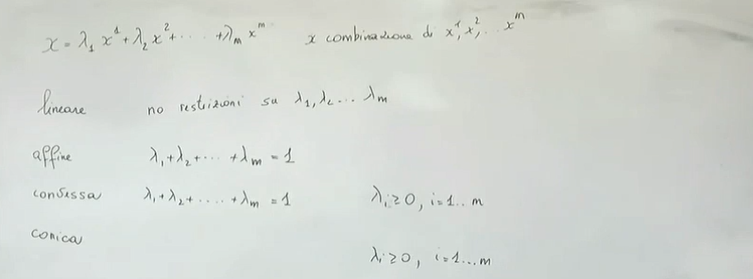 x = λ₁ x¹ + λ₂ x² + ···· + λₘ xᵐ x combinazione di x¹, x², .. xᵐ
lineare no restrizioni su λ₁, λ₂ ... λₘ
affine λ₁ + λ₂ + ··· + λₘ = 1
convessa λ₁ + λ₂ + ···· + λₘ = 1 λᵢ ≥ 0, i = 1.. m
conica
λᵢ ≥ 0, i = 1... m